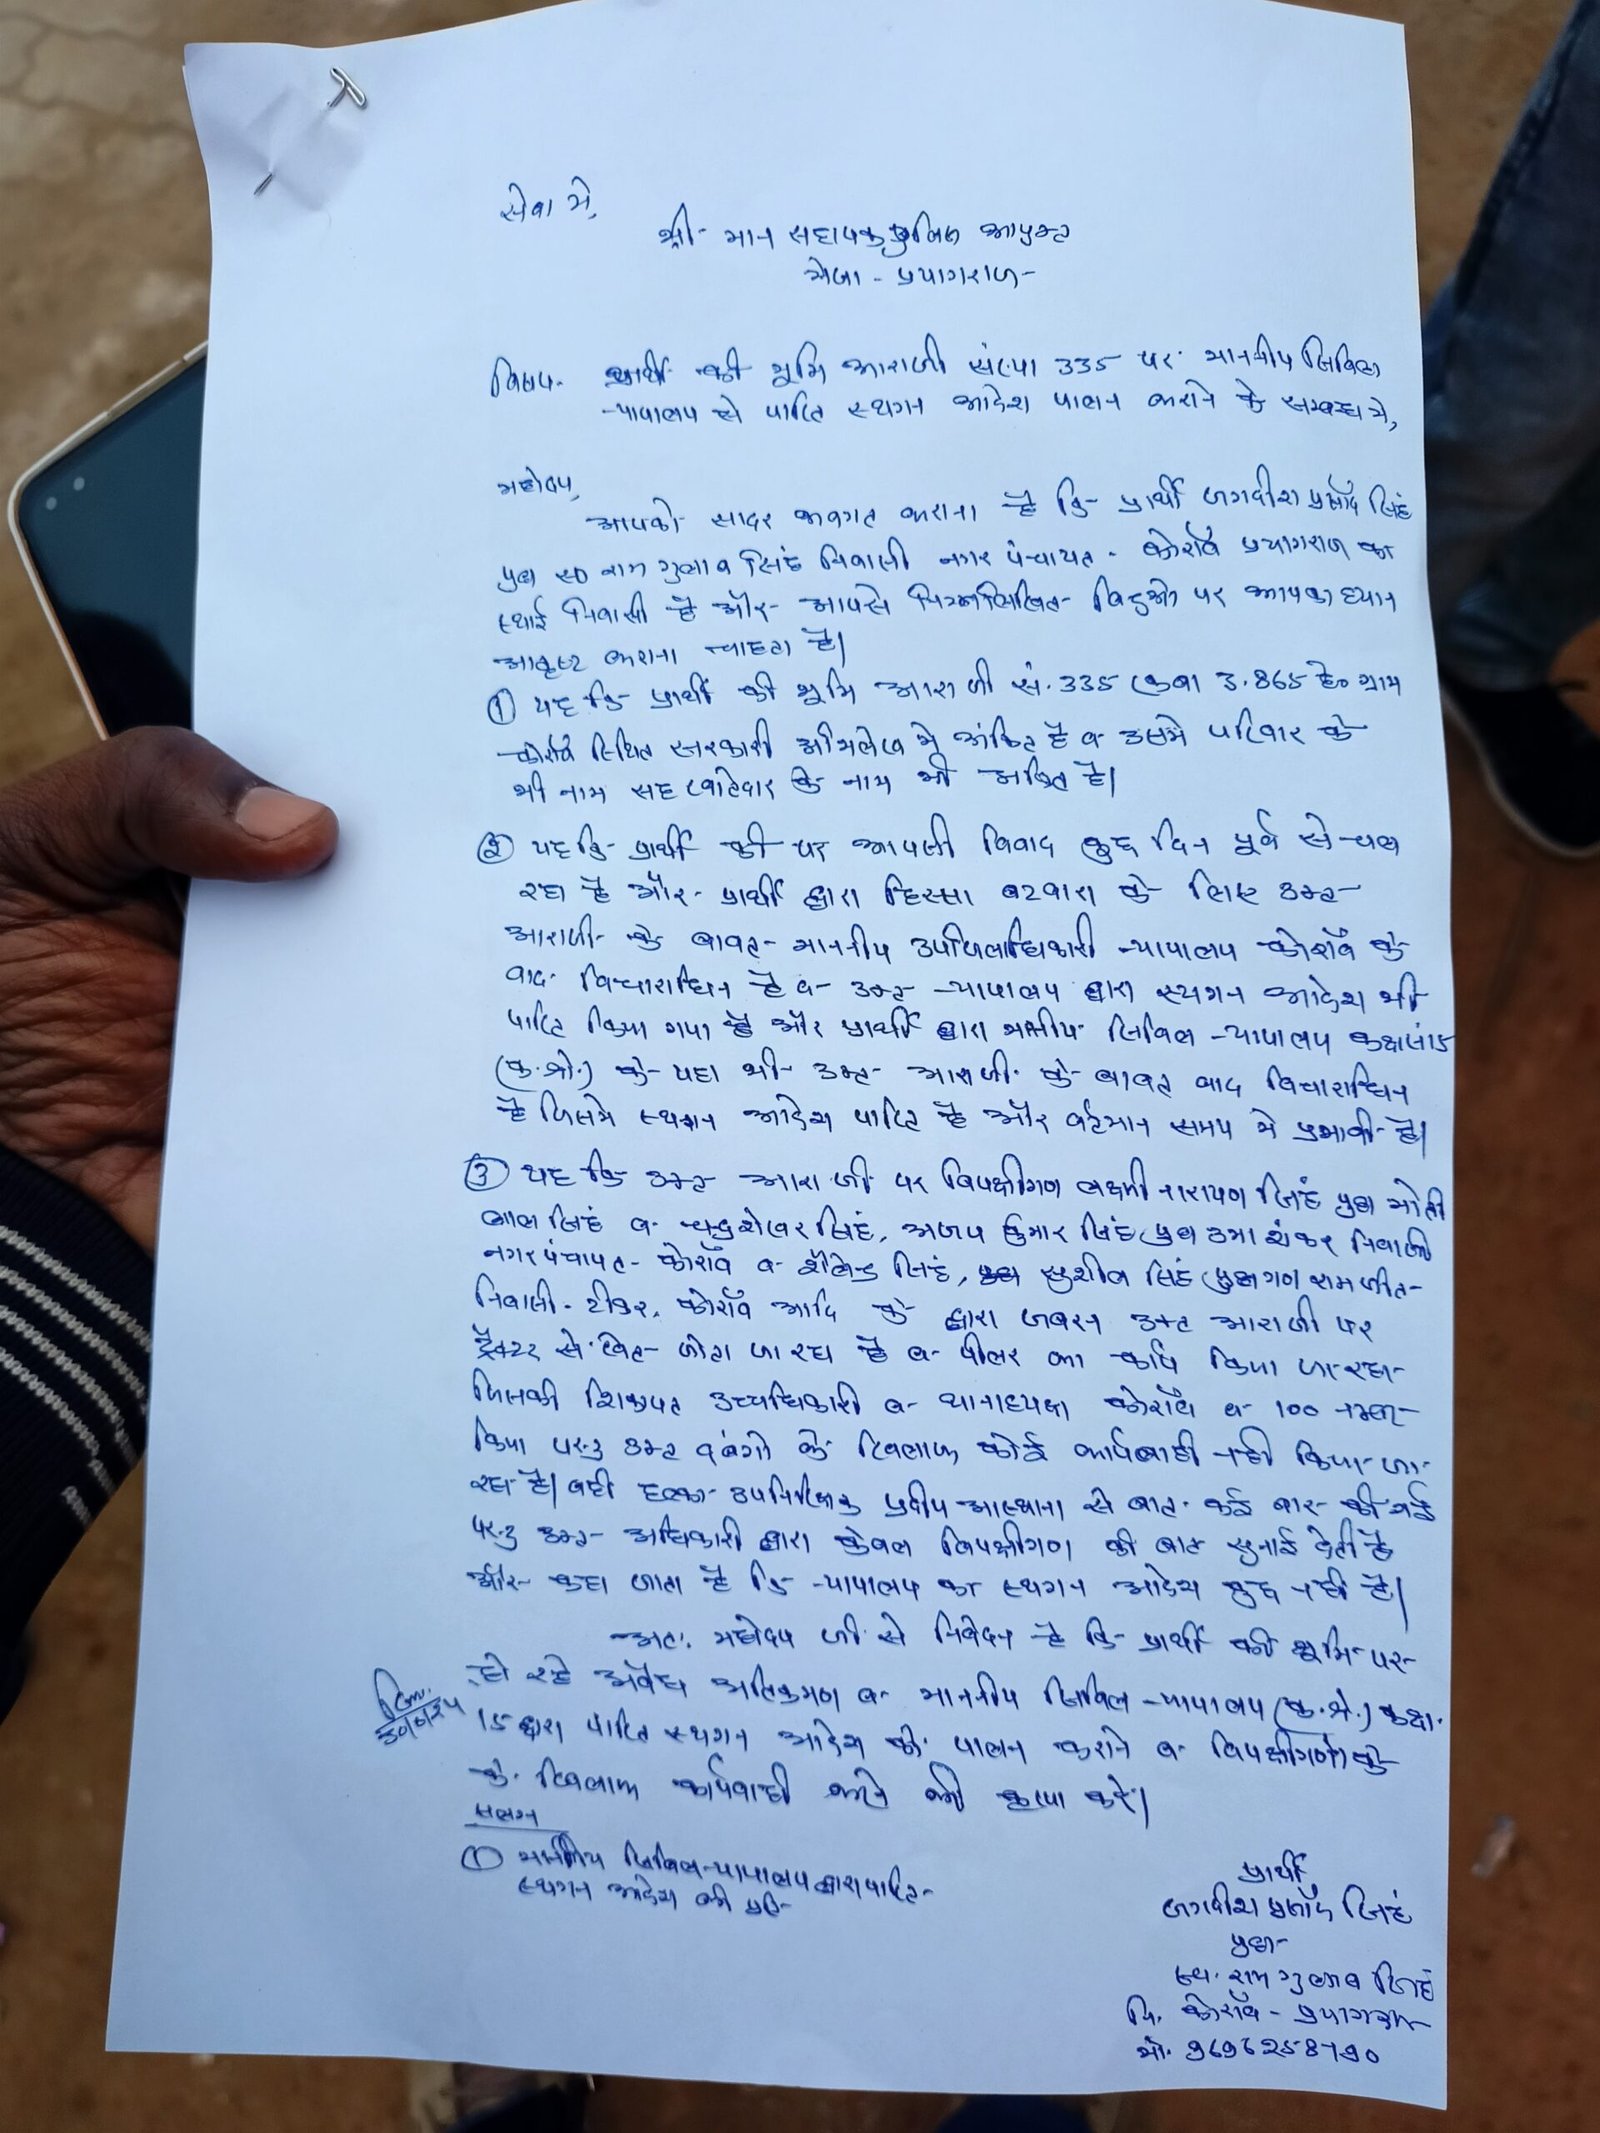 सेवा मे,
श्री मान सहायक पुलिस आयुक्त
मेजा - प्रयागराज
विषय- प्रार्थी की भूमि आराजी संख्या 335 पर माननीय सिविल
न्यायालय से पारित स्थगन आदेश पालन कराने के सम्बन्ध मे,
महोदय,
आपको सादर अवगत कराना है कि प्रार्थी जगदीश प्रसाद सिंह
पुत्र स्व राम गुलाब सिंह निवासी नगर पंचायत - कोराँव प्रयागराज का
स्थाई निवासी है और आपसे निम्नलिखित बिन्दुओ पर आपका ध्यान
आकृष्ट कराना चाहता है।
① यह कि प्रार्थी की भूमि आराजी सं. 335 रकबा 3.865 हे० ग्राम
कोराँव स्थित सरकारी अभिलेख मे अंकित है व उसमे परिवार के
भी नाम सह खातेदार के नाम भी अंकित है।
② यह कि प्रार्थी की पर आपसी विवाद कुछ दिन पूर्व से चल
रहा है और प्रार्थी द्वारा हिस्सा बटवारा के लिए उक्त
आराजी के बावत माननीय उपजिलाधिकारी न्यायालय कोराँव के
वाद विचाराधिन है व उक्त न्यायालय द्वारा स्थगन आदेश भी
पारित किया गया है और प्रार्थी द्वारा सिविल न्यायालय कक्ष सं 15
(क.श्रे.) के यहा भी उक्त आराजी के बावत वाद विचाराधिन
है जिसमे स्थगन आदेश पारित है और वर्तमान समय मे प्रभावी है।
③ यह कि उक्त आराजी पर विपक्षीगण लक्ष्मी नारायण सिंह पुत्र मोती
लाल सिंह व चन्द्रशेखर सिंह, अजय कुमार सिंह पुत्र उमा शंकर निवासी
नगर पंचायत - कोराँव व शैलेन्द्र सिंह, सुशील सिंह पुत्रगण राम जीत
निवासी - टीकर, कोराँव आदि के द्वारा जबरन उक्त आराजी पर
ट्रैक्टर से खेत जोता जा रहा है व पीलर का कार्य किया जा रहा
जिसकी शिकायत उच्चाधिकारी व थानाध्यक्ष कोराँव व 100 नम्बर
किया परन्तु उक्त दबंगो के खिलाफ कोई कार्यवाही नही किया जा
रहा है। वही हल्का उपनिरिक्षक प्रदीप अस्थाना से बात कई बार की गई
परन्तु उक्त अधिकारी द्वारा केवल विपक्षीगण की बात सुनाई देती है
और कहा जाता है कि न्यायालय का स्थगन आदेश कुछ नही है।
अतः महोदय जी से निवेदन है कि प्रार्थी की भूमि पर
हो रहे अवैध अतिक्रमण व माननीय सिविल न्यायालय (क.श्रे.) कक्ष
15 द्वारा पारित स्थगन आदेश की पालन कराने व विपक्षीगणो के
के खिलाफ कार्यवाही करने की कृपा करें।
संलग्न
① माननीय सिविल न्यायालय द्वारा पारित
स्थगन आदेश की प्रति
प्रार्थी
जगदीश प्रसाद सिंह
पुत्र
स्व. राम गुलाब सिंह
नि. कोराँव - प्रयागराज